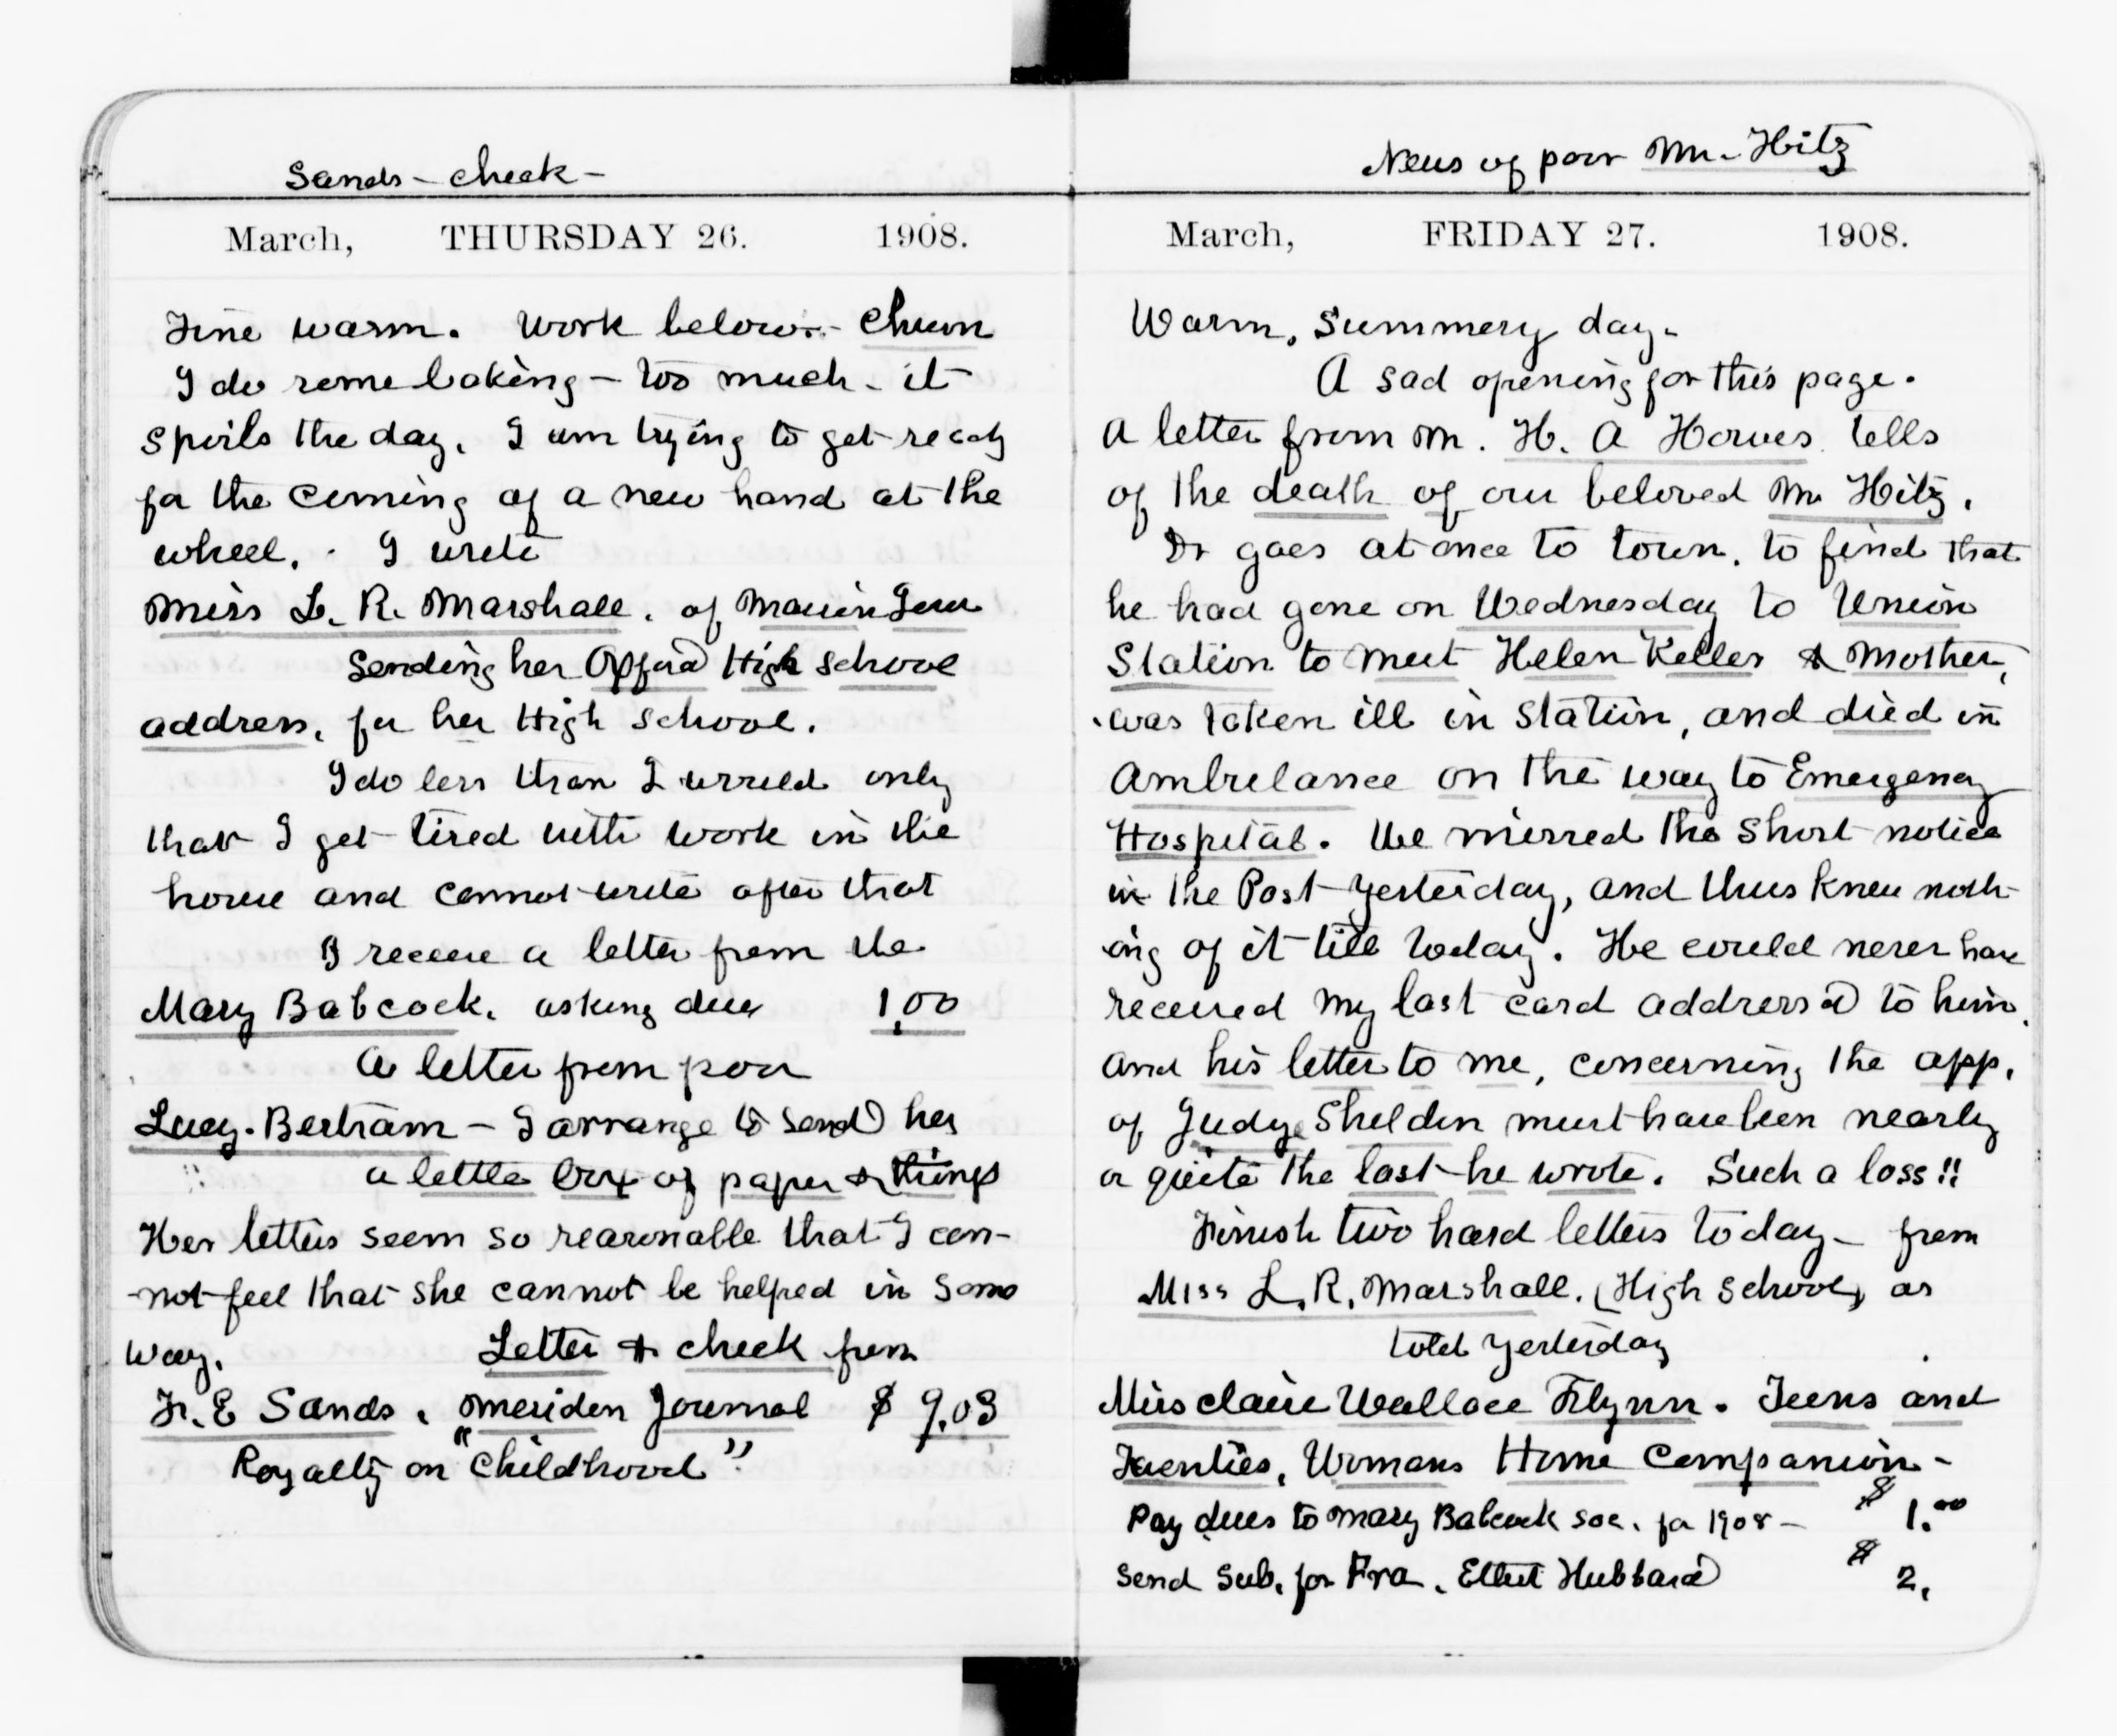 Sands - check -
March, THURSDAY 26. 1908.
Fine warm. Work below. - Churn
I do some baking - too much - it
spoils the day. I am trying to get ready
for the coming of a new hand at the
wheel. I write
Miss L. R. Marshall. of
Sending her Oxford High School
address, for her High School.
I do less than I would only
that I get tired with work in the
house and cannot write after that
I receive a letter from the
Mary Babcock. asking dues 1,00
A letter from poor
Lucy. Bertram - I arrange to send her
a little box of paper & things
Her letters seem so reasonable that I can-
not feel that she cannot be helped in some
way. Letter & check from
Fr. E Sands. Meriden Journal $ 9.03
Royalty on "Childhood"
News of poor Mr. Hitz
March, FRIDAY 27. 1908.
Warm, Summery day.
A sad opening for this page.
A letter from Mr. H. A Howes tells
of the death of our beloved Mr Hitz.
Dr goes at once to town. to find that
he had gone on Wednesday to Union
Station to meet Helen Keller & Mother,
was taken ill in Station, and died in
Ambulance on the way to Emergency
Hospital. We missed the short notice
in the Post yesterday, and thus knew noth-
ing of it till today. He could never have
received my last card addressed to him.
And his letter to me, concerning the app.
of Judge Sheldon must have been nearly
or quite the last he wrote. Such a loss!!
Finish two hard letters today - from
Miss L. R. Marshall. (High School) as
told yesterday
Miss Claire Wallace Flynn. Teens and
Twenties, Womans Home Companion -
Pay dues to Mary Babcock Soc. for 1908 - $ 1.00
Send Sub. for Fra. Elbert Hubbard $ 2.